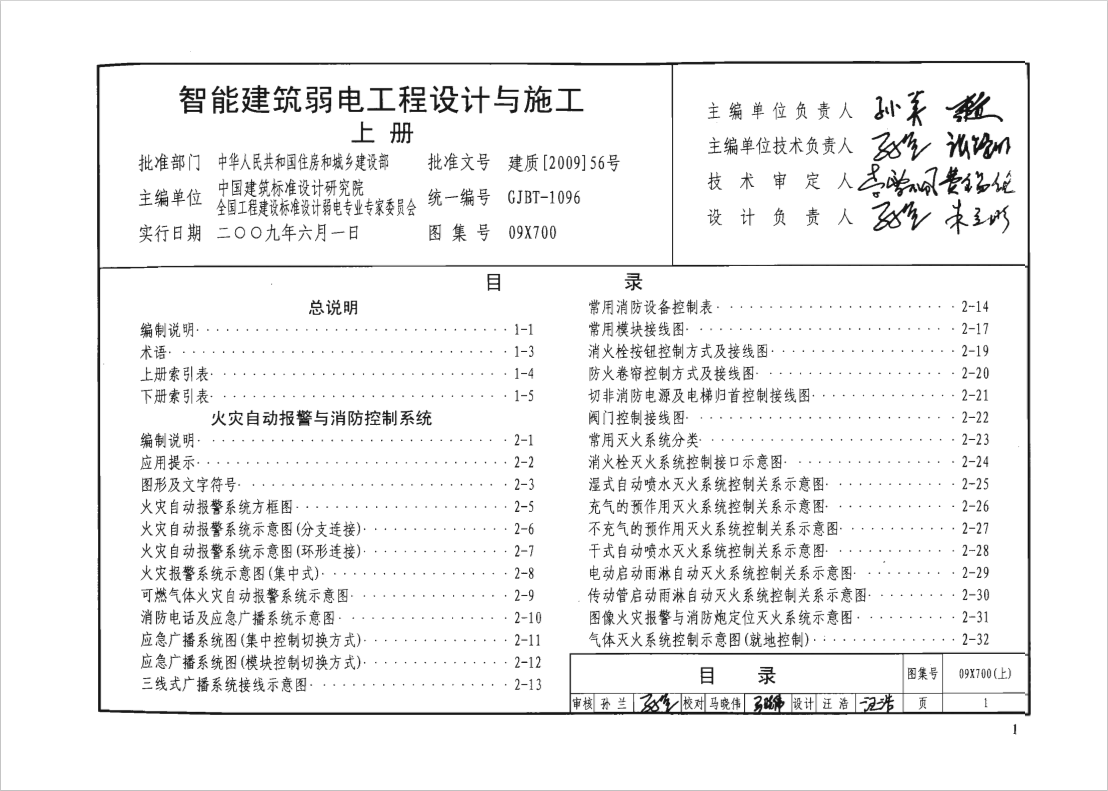 智能建筑弱电工程设计与施工
上 册
批准部门 中华人民共和国住房和城乡建设部 批准文号 建质[2009]56号
主编单位 中国建筑标准设计研究院
全国工程建设标准设计弱电专业专家委员会 统一编号 GJBT-1096
实行日期 二〇〇九年六月一日 图集号 09X700
主编单位负责人
主编单位技术负责人
技术审定人
设计负责人
目 录
总说明
编制说明 1-1
术语 1-3
上册索引表 1-4
下册索引表 1-5
火灾自动报警与消防控制系统
编制说明 2-1
应用提示 2-2
图形及文字符号 2-3
火灾自动报警系统方框图 2-5
火灾自动报警系统示意图(分支连接) 2-6
火灾自动报警系统示意图(环形连接) 2-7
火灾报警系统示意图(集中式) 2-8
可燃气体火灾自动报警系统示意图 2-9
消防电话及应急广播系统示意图 2-10
应急广播系统图(集中控制切换方式) 2-11
应急广播系统图(模块控制切换方式) 2-12
三线式广播系统接线示意图 2-13
常用消防设备控制表 2-14
常用模块接线图 2-17
消火栓按钮控制方式及接线图 2-19
防火卷帘控制方式及接线图 2-20
切非消防电源及电梯归首控制接线图 2-21
阀门控制接线图 2-22
常用灭火系统分类 2-23
消火栓灭火系统控制接口示意图 2-24
湿式自动喷水灭火系统控制关系示意图 2-25
充气的预作用灭火系统控制关系示意图 2-26
不充气的预作用灭火系统控制关系示意图 2-27
干式自动喷水灭火系统控制关系示意图 2-28
电动启动雨淋自动灭火系统控制关系示意图 2-29
传动管启动雨淋自动灭火系统控制关系示意图 2-30
图像火灾报警与消防炮定位灭火系统示意图 2-31
气体灭火系统控制示意图(就地控制) 2-32
目 录 图集号 09X700(上)
审核 孙兰 校对 马晓伟 设计 汪浩 汪浩 页 1
1